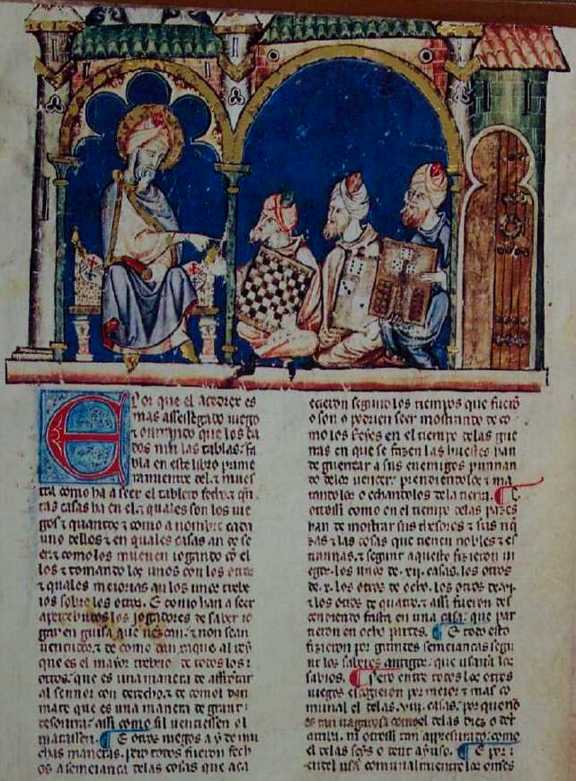 E Por que el acedrex es
mas assessegado iuego
& onrrado que los da
dos nin las tablas. fa
bla en este libro prime
ramientre del. & mues
tra como ha a seer el tablero fecho. & quan
tas casas ha en el. & quales son los iue
gos & quantos & como an nombre cada
uno dellos & en quales casas an de se
er. & como los mueuen iogando co el
los & tomando los unos con los otros
& quales meiorias an los unos trebe
ios sobre los otros. E como han a seer
apercebudos los iogadores de saber io
gar en guisa que uençan. & non sean
uençudos. & de como dan xaque al Rey
que es el mayor trebeio de todos los o
otros. que es una manera de affrontar
al sennor con derecho. & de comol dan
mate que es una manera de grant
desonrra. assi como sil uenciessen ol
matassen. ¶ E otros iuegos a y de mu
chas maneras. pero todos fueron fech
os a semeiança de las cosas que aca
ecieron segund los tiempos que fuero
o son o podrien seer mostrando de co
mo los Reyes en el tiempo de las gue
rras en que se fazen las huestes han
de guerrear a sus enemigos punnan
do de los uencer. prendiendo los & ma
tando los o echando los de la tierra. ¶ E
otrossi como en el tiempo de las pazes
han de mostrar sus thesoros & sus riq
zas & las cosas que tienen nobles & es
trannas. & segunt aquesto fizieron iu
egos. los unos de .xii. casas. los otros
de .x. los otros de ocho. los otros de .vi.
& los otros de quatro. & assi fueron des
cendiendo fasta en una casa. que par
tieron en ocho partes. ¶ E todo esto
fizieron por grandes semeianças segu
nt los saberes antigos. que usaron los
sabios. ¶ Pero entre todos los otros
iuegos escogieron por meior & mas co
munal el de las .viii. casas. por que no
es tan uagaroso como el de las diez o de
arriba. ni otrossi tan apressurado. como
el de las seys o dent ayuso. ¶ E por